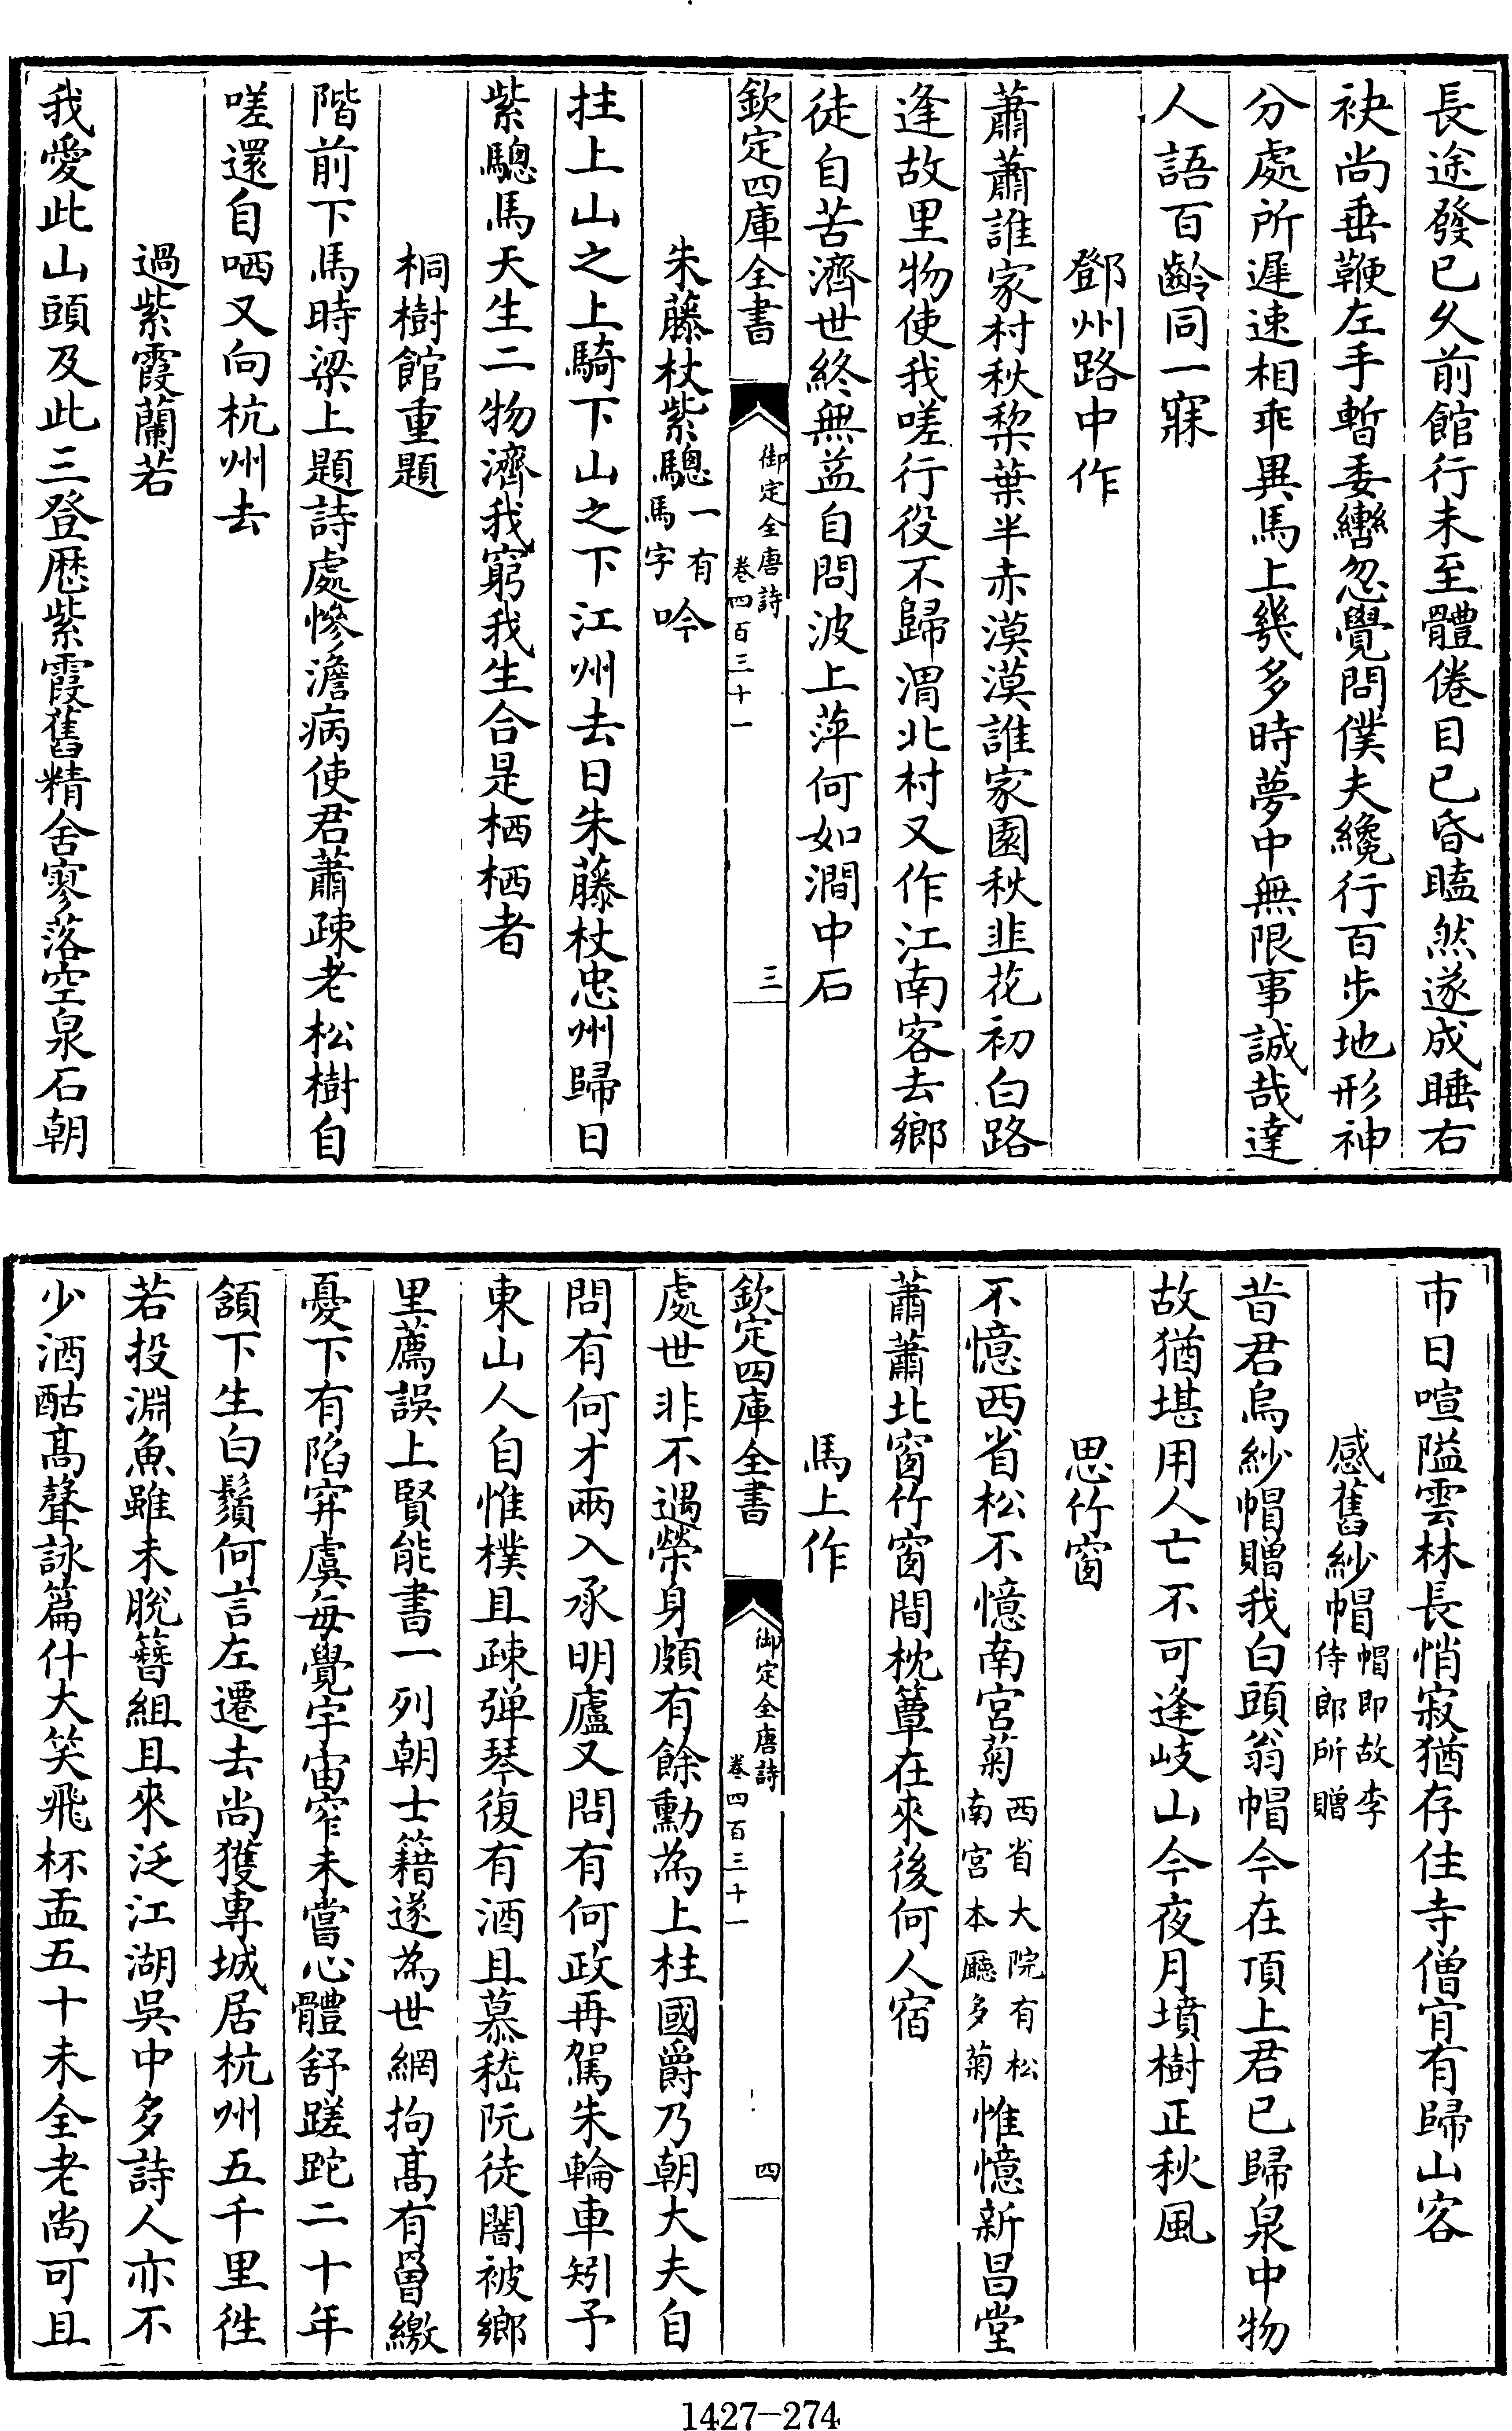 長途發已久前館行未至體倦目已昏瞌然遂成睡右
袂尚垂鞭左手暫委轡忽覺問僕夫纔行百步地形神
分處所遲速相乖異馬上幾多時夢中無限事誠哉達
人語百齡同一寐
鄧州路中作
蕭蕭誰家村秋棃葉半赤漠漠誰家園秋韭花初白路
逢故里物使我嗟行役不歸渭北村又作江南客去鄉
徒自苦濟世終無益自問波上萍何如澗中石
欽定四庫全書
御定全唐詩
卷四百三十一
三
朱藤杖紫驄一有馬字吟
拄上山之上騎下山之下江州去日朱藤杖忠州歸日
紫驄馬天生二物濟我窮我生合是栖栖者
桐樹館重題
階前下馬時梁上題詩處慘澹病使君蕭疎老松樹自
嗟還自哂又向杭州去
過紫霞蘭若
我愛此山頭及此三登歷紫霞舊精舍寥落空泉石朝
市日喧隘雲林長悄寂猶存住寺僧肎有歸山客
感舊紗帽帽即故李侍郎所贈
昔君烏紗帽贈我白頭翁帽今在頂上君已歸泉中物
故猶堪用人亡不可逢岐山今夜月墳樹正秋風
思竹窗
不憶西省松不憶南宮菊西省大院有松南宮本廳多菊惟憶新昌堂
蕭蕭北窗竹窗間枕簟在來後何人宿
馬上作
欽定四庫全書
御定全唐詩
卷四百三十一
四
處世非不遇榮身頗有餘勳為上柱國爵乃朝大夫自
問有何才兩入承明廬又問有何政再駕朱輪車矧予
東山人自惟樸且疎彈琴復有酒且慕嵇阮徒闇被鄉
里薦誤上賢能書一列朝士籍遂為世網拘髙有罾繳
憂下有陷穽虞每覺宇宙窄未嘗心體舒蹉跎二十年
頷下生白鬚何言左遷去尚獲專城居杭州五千里徃
若投淵魚雖未脫簪組且來泛江湖吳中多詩人亦不
少酒酤髙聲詠篇什大笑飛杯盂五十未全老尚可且
1427-274